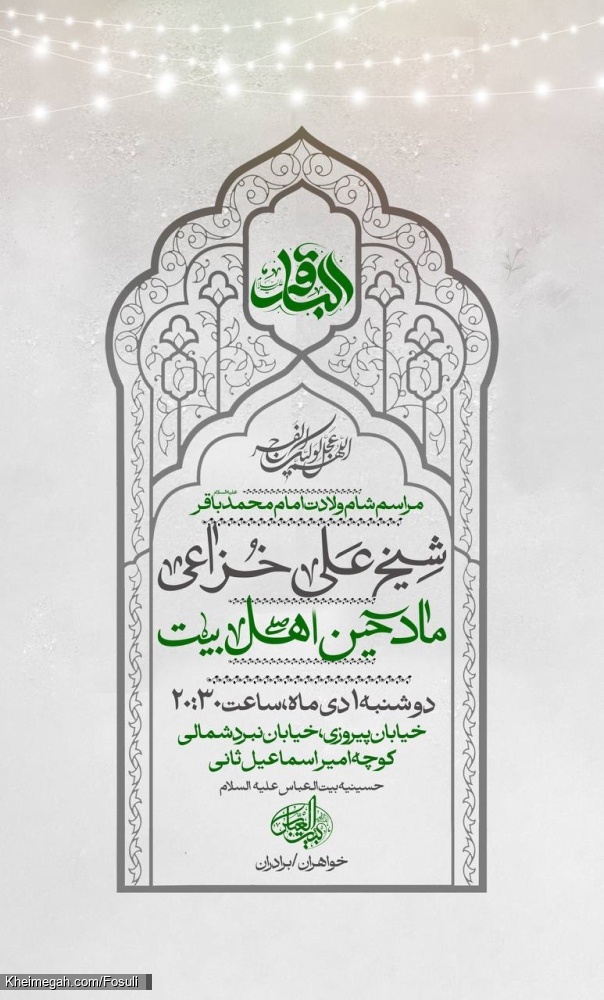 الباقر
اللهم عجل لولیک الفرج
مراسم شام ولادت امام محمد باقر علیه‌السلام
شِیخ عَلی خُزاعی
مادحین اهل بیت
دوشنبه ۱ دی ماه، ساعت ۲۰:۳۰
خیابان پیروزی، خیابان نبرد شمالی
کوچه امیر اسماعیل ثانی
حسینیه بیت العباس علیه السلام
بیت العباس
خواهران/برادران
Kheimegah.com/Fosuli